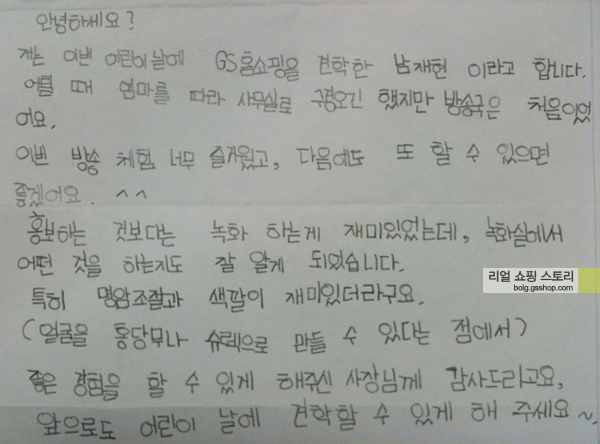 안녕하세요?
저는 이번 어린이날에 GS홈쇼핑을 견학한 남재현 이라고 합니다.
여름 때 엄마를 따라 사무실로 구경오긴 했지만 방송국은 처음이었
어요.
이번 방송 체험 너무 즐거웠고, 다음에도 또 할 수 있으면
좋겠어요. ^^
홍보하는 것보다는 녹화 하는게 재미있었는데, 녹화실에서
어떤 것을 하는지도 잘 알게 되었습니다.
리얼 쇼핑 스토리
bolg.gsshop.com
특히 명암조절과 색깔이 재미있더라구요.
(얼굴을 홍당무나 슈렉으로 만들 수 있다는 점에서)
좋은 경험을 할 수 있게 해주신 사장님께 감사드리고요,
앞으로도 어린이 날에 견학할 수 있게 해 주세요~